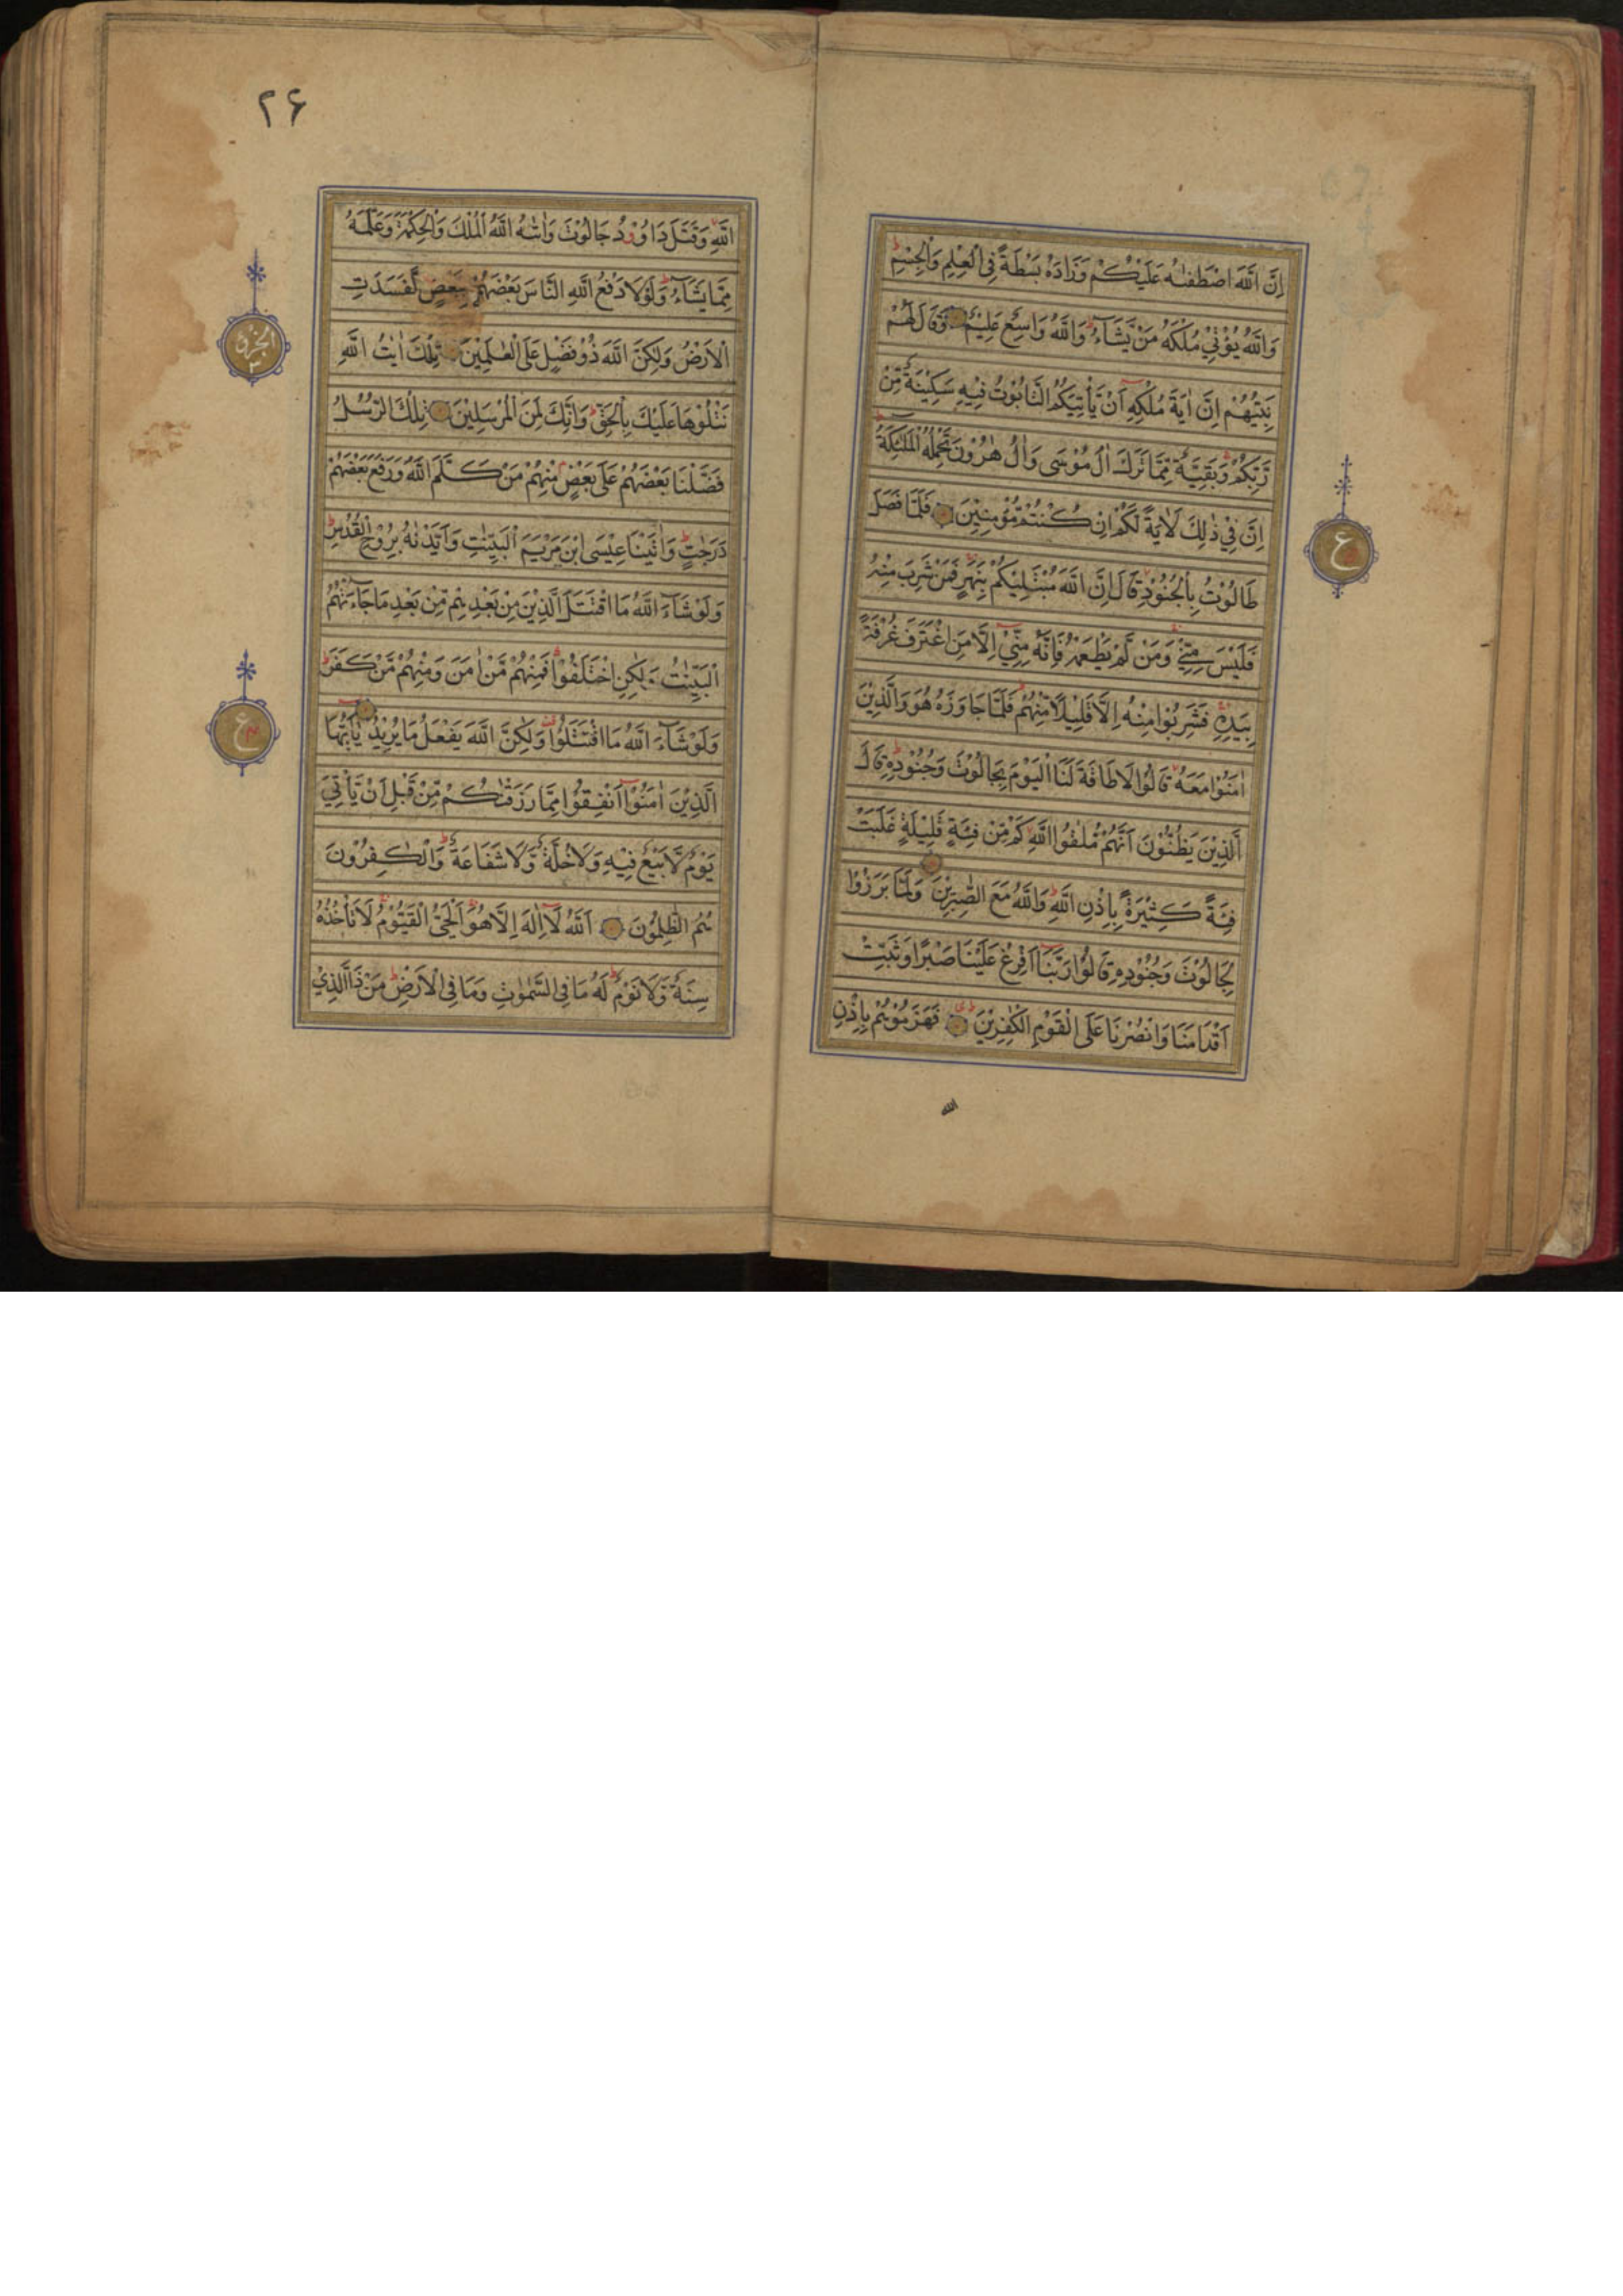 اِنَّ اللّٰهَ اصْطَفٰىهُ عَلَيْكُمْ وَزَادَهٗ بَسْطَةً فِي الْعِلْمِ وَالْجِسْمِ ط
وَاللّٰهُ يُؤْتِيْ مُلْكَهٗ مَنْ يَّشَآءُ ط وَاللّٰهُ وَاسِعٌ عَلِيْمٌ وَقَالَ لَهُمْ
نَبِيُّهُمْ اِنَّ اٰيَةَ مُلْكِهٖٓ اَنْ يَّأْتِيَكُمُ التَّابُوْتُ فِيْهِ سَكِيْنَةٌ مِّنْ
رَّبِّكُمْ وَبَقِيَّةٌ مِّمَّا تَرَكَ اٰلُ مُوْسٰى وَاٰلُ هٰرُوْنَ تَحْمِلُهُ الْمَلٰٓئِكَةُ ط
اِنَّ فِيْ ذٰلِكَ لَاٰيَةً لَّكُمْ اِنْ كُنْتُمْ مُّؤْمِنِيْنَ فَلَمَّا فَصَلَ
طَالُوْتُ بِالْجُنُوْدِ قَالَ اِنَّ اللّٰهَ مُبْتَلِيْكُمْ بِنَهَرٍ فَمَنْ شَرِبَ مِنْهُ
فَلَيْسَ مِنِّيْ وَمَنْ لَّمْ يَطْعَمْهُ فَاِنَّهٗ مِنِّيْٓ اِلَّا مَنِ اغْتَرَفَ غُرْفَةً
بِيَدِهٖ فَشَرِبُوْا مِنْهُ اِلَّا قَلِيْلًا مِّنْهُمْ ط فَلَمَّا جَاوَزَهٗ هُوَ وَالَّذِيْنَ
اٰمَنُوْا مَعَهٗ قَالُوْا لَا طَاقَةَ لَنَا الْيَوْمَ بِجَالُوْتَ وَجُنُوْدِهٖ ط قَالَ
الَّذِيْنَ يَظُنُّوْنَ اَنَّهُمْ مُّلٰقُوا اللّٰهِ كَمْ مِّنْ فِئَةٍ قَلِيْلَةٍ غَلَبَتْ
فِئَةً كَثِيْرَةً بِاِذْنِ اللّٰهِ ط وَاللّٰهُ مَعَ الصّٰبِرِيْنَ وَلَمَّا بَرَزُوْا
لِجَالُوْتَ وَجُنُوْدِهٖ قَالُوْا رَبَّنَآ اَفْرِغْ عَلَيْنَا صَبْرًا وَّثَبِّتْ
اَقْدَامَنَا وَانْصُرْنَا عَلَى الْقَوْمِ الْكٰفِرِيْنَ فَهَزَمُوْهُمْ بِاِذْنِ
ع
الله
۲۶
اللّٰهِ وَقَتَلَ دَاوٗدُ جَالُوْتَ وَاٰتٰىهُ اللّٰهُ الْمُلْكَ وَالْحِكْمَةَ وَعَلَّمَهٗ
مِمَّا يَشَآءُ ط وَلَوْلَا دَفْعُ اللّٰهِ النَّاسَ بَعْضَهُمْ بِبَعْضٍ لَّفَسَدَتِ
الْاَرْضُ وَلٰكِنَّ اللّٰهَ ذُوْ فَضْلٍ عَلَى الْعٰلَمِيْنَ تِلْكَ اٰيٰتُ اللّٰهِ
نَتْلُوْهَا عَلَيْكَ بِالْحَقِّ ط وَاِنَّكَ لَمِنَ الْمُرْسَلِيْنَ تِلْكَ الرُّسُلُ
فَضَّلْنَا بَعْضَهُمْ عَلٰى بَعْضٍ م مِنْهُمْ مَّنْ كَلَّمَ اللّٰهُ وَرَفَعَ بَعْضَهُمْ
دَرَجٰتٍ ط وَاٰتَيْنَا عِيْسَى ابْنَ مَرْيَمَ الْبَيِّنٰتِ وَاَيَّدْنٰهُ بِرُوْحِ الْقُدُسِ ط
وَلَوْ شَآءَ اللّٰهُ مَا اقْتَتَلَ الَّذِيْنَ مِنْ بَعْدِهِمْ مِّنْ بَعْدِ مَا جَآءَتْهُمُ
الْبَيِّنٰتُ وَلٰكِنِ اخْتَلَفُوْا فَمِنْهُمْ مَّنْ اٰمَنَ وَمِنْهُمْ مَّنْ كَفَرَ ط
وَلَوْ شَآءَ اللّٰهُ مَا اقْتَتَلُوْا وَلٰكِنَّ اللّٰهَ يَفْعَلُ مَا يُرِيْدُ يٰٓاَيُّهَا
الَّذِيْنَ اٰمَنُوْٓا اَنْفِقُوْا مِمَّا رَزَقْنٰكُمْ مِّنْ قَبْلِ اَنْ يَّأْتِيَ
يَوْمٌ لَّا بَيْعٌ فِيْهِ وَلَا خُلَّةٌ وَّلَا شَفَاعَةٌ ط وَالْكٰفِرُوْنَ
هُمُ الظّٰلِمُوْنَ اَللّٰهُ لَآ اِلٰهَ اِلَّا هُوَ اَلْحَيُّ الْقَيُّوْمُ لَا تَأْخُذُهٗ
سِنَةٌ وَّلَا نَوْمٌ ط لَهٗ مَا فِي السَّمٰوٰتِ وَمَا فِي الْاَرْضِ ط مَنْ ذَا الَّذِيْ
الجزؤ
۳
ع